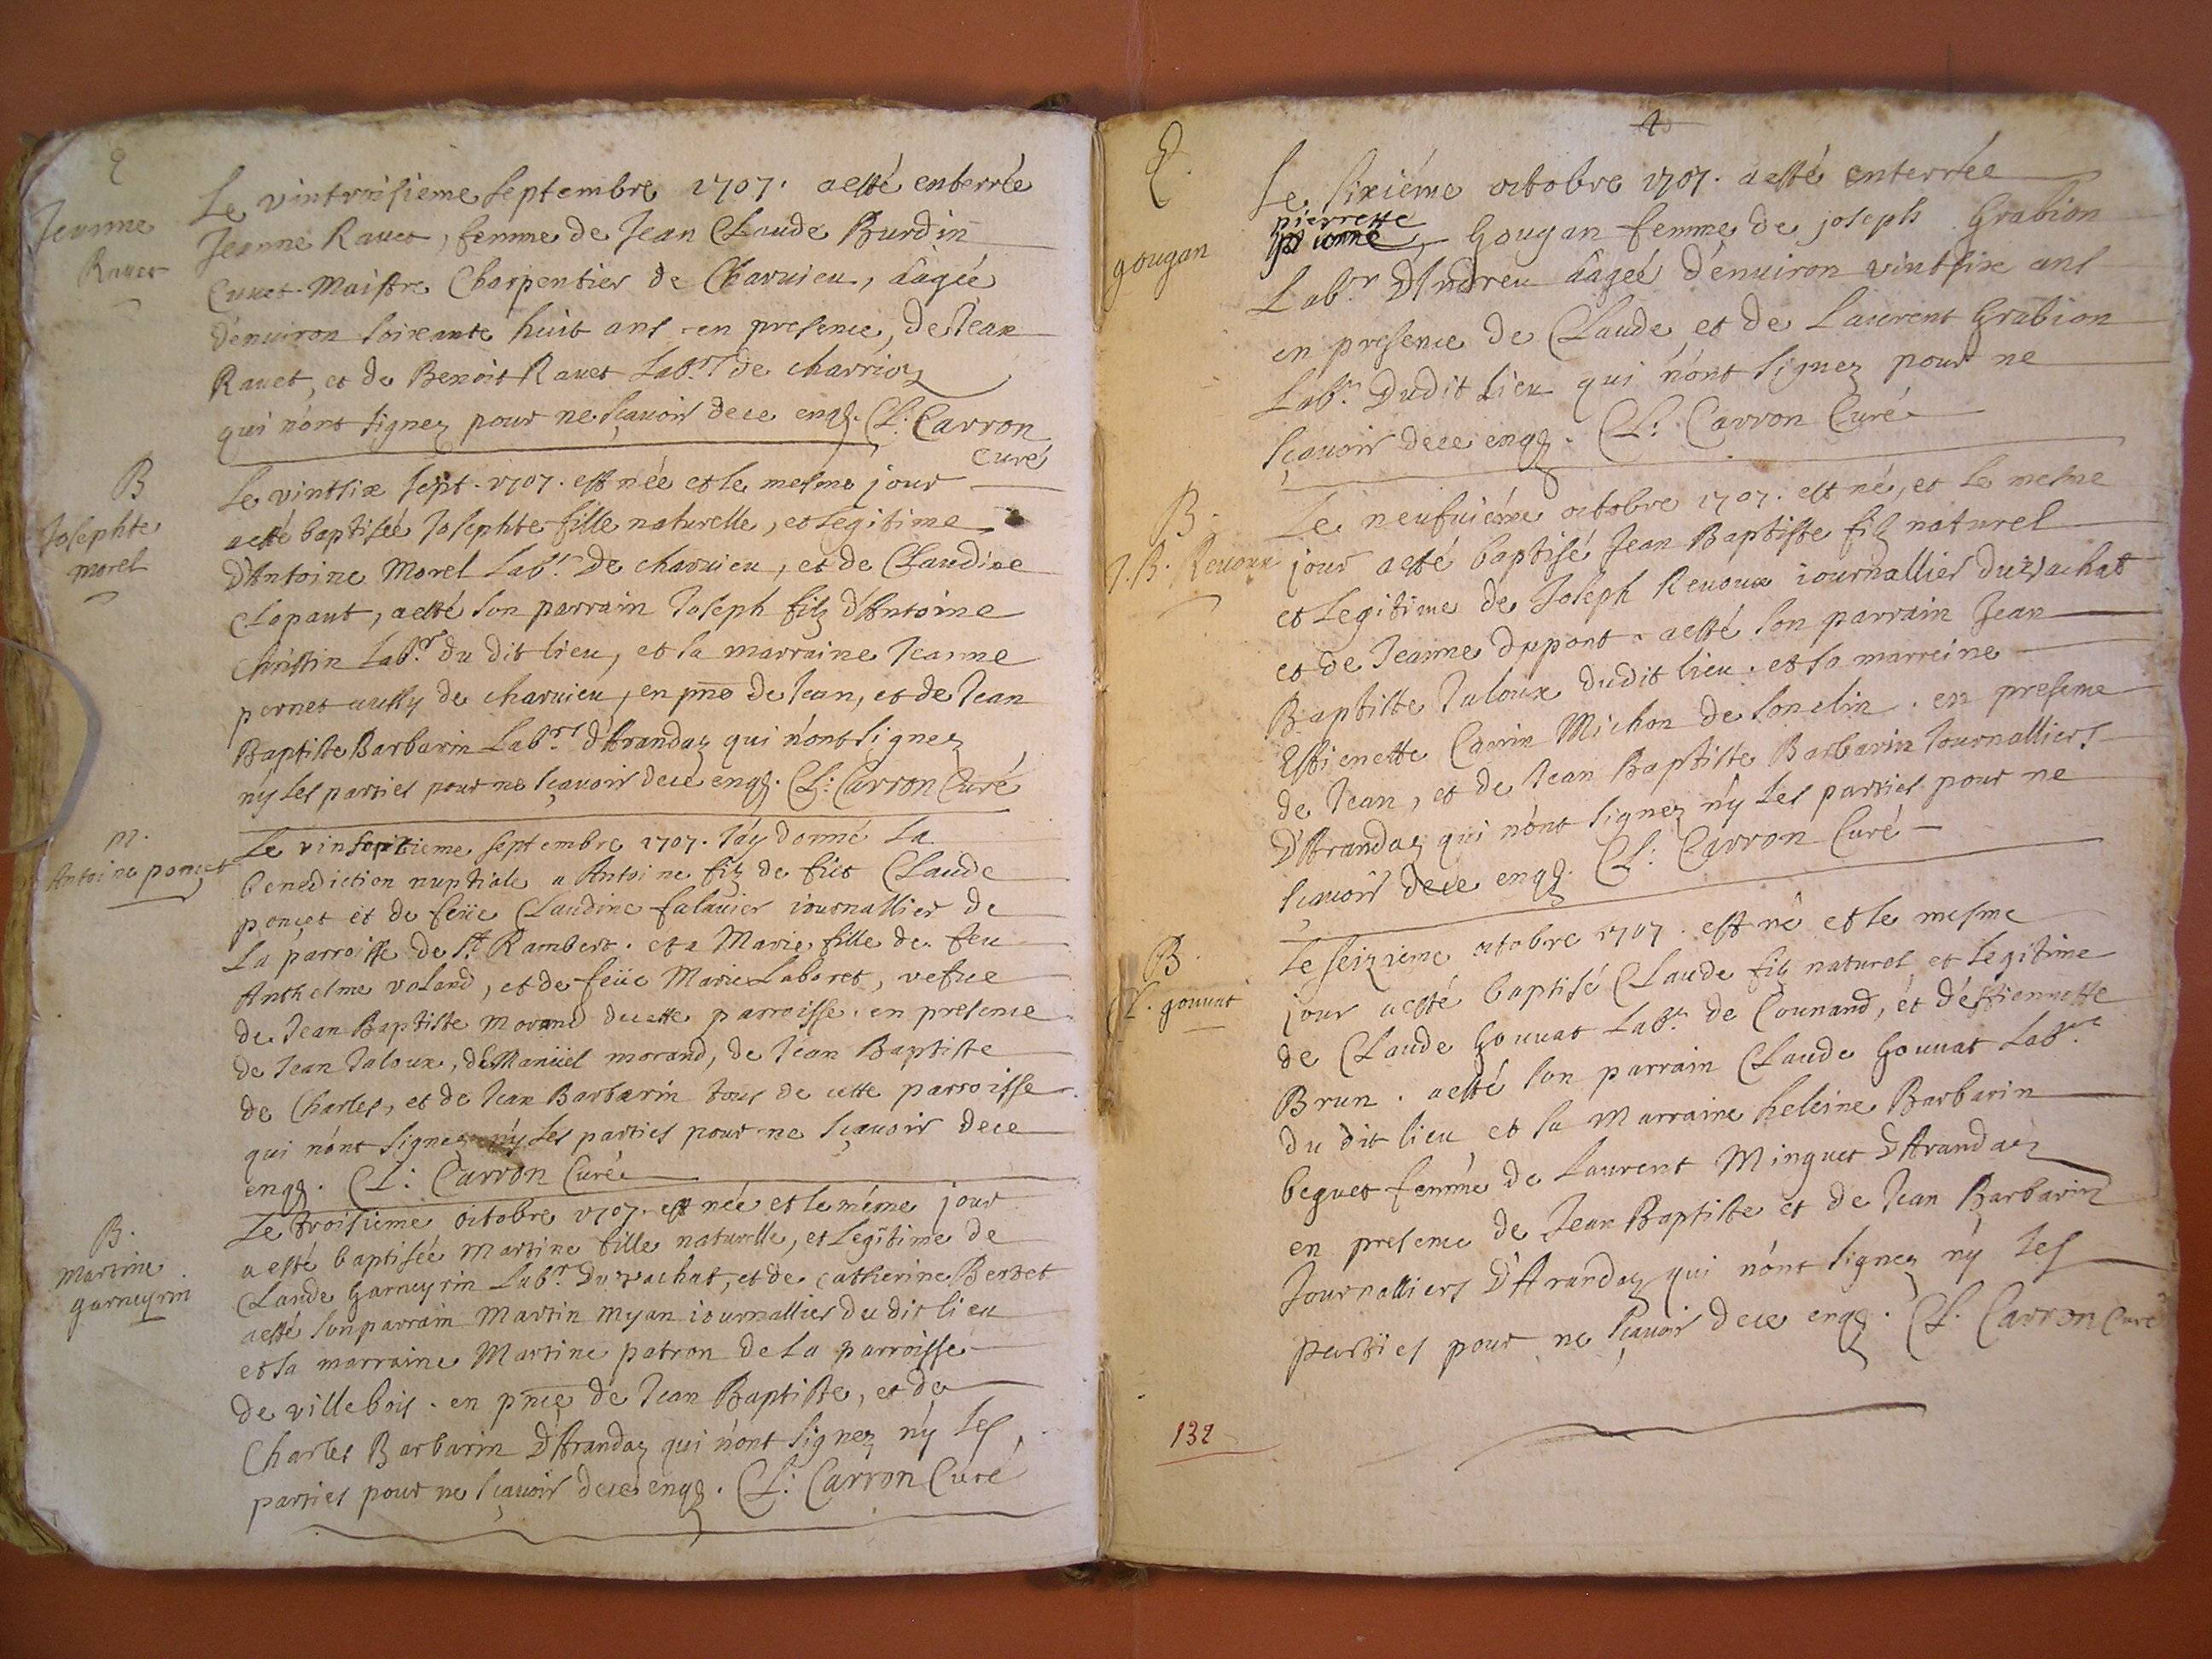 E
Jeanne
Rauet
Le vintroisieme septembre 1707. a esté enterrée
Jeanne Rauet, femme de Jean Claude Burdin
Cuuet Maistre Charpentier de Charuieu, âagée
d'enuiron soixante huit ans en presence, de Jean
Rauet, et de Benoit Rauet Labrs de charrioz
qui n'ont signez pour ne sçauoir de ce enqz. Cl: Carron
Curé
B
Josephte
morel
Le vintsix sept. 1707. est née et le mesme jour
a esté baptisée Josephte fille naturelle, et legitime
d'Antoine Morel Labr. De charuieu, et de Claudine
Clapaut, a esté son parrain Joseph filz d'Antoine
Christin Labr. du dit lieu, et sa marraine Jeanne
pernet aussy de charuieu, en pñce de Jean, et de Jean
Baptiste Barbarin Labrs. d'Arandaz qui n'ont signez
ny les parties pour ne sçauoir de ce enqz. Cl: Carron Curé
M.
Antoine poncet
Le vinseptieme septembre 1707. J'ay donné La
benediction nuptiale a Antoine filz de füt Claude
poncet et de feüe Claudine falauier iournallier de
La parroisse de St. Rambert. et a Marie fille de feu
Anthelme voland, et de feüe Marie Labaret, vefue
de Jean Baptiste Morand de cette parroisse. en presence
de Jean Jaloux, de Manüel morand, de Jean Baptiste
de Charles, et de Jean Barbarin tous de cette parroisse
qui n'ont signez ny les parties pour ne sçauoir de ce
enqz. Cl: Carron Curé
B.
Martine
garneyrin
Le troisieme octobre 1707. est née et le méme jour
a esté baptisée Martine fille naturelle, et Legitime de
Claude Garneyrin Labr. Du vachat, et de Catherine Bertet
a esté son parrain Martin Myan iournallier du dit lieu
et sa marraine Martine patron de La parroisse
de villebois. en pñce de Jean Baptiste, et de
Charles Barbarin D'Arandaz qui n'ont signez ny les
parties pour ne sçauoir de ce enqz. Cl: Carron Curé
E.
gougan
Le sixiéme octobre 1707. a esté enterrée
pierrette
Gougan femme de joseph Grabion
Labr. D'Indrieu âagée d'enuiron vintsix ans
en presence de Claude et de Laurent Grabion
Labrs. Dudit Lieu qui n'ont signez pour ne
sçauoir de ce enqz. Cl: Carron Curé
B.
J. B. Reuoux
Le neufuiéme octobre 1707. est né, et Le mesme
jour a esté baptisé Jean Baptiste filz naturel
et Legitime de Joseph Reuoux iournallier du vachat
et de Jeanne dupont. a esté son parrain Jean
Baptiste Jaloux dudit lieu. et sa marreine
Estienette Michon de Souclin. en presence
de Jean, et de Jean Baptiste Barbarin Journalliers
D'Arandaz qui n'ont signez n'y Les parties pour ne
sçauoir de ce enqz. Cl: Carron Curé
B.
Cl. gouuat
Le seizieme octobre 1707. est né et le mesme
jour a esté baptisé Claude filz naturel et Legitime
de Claude Gouuat Labr. de Counand, et d'Estiennette
Brun. a esté son parrain Claude Gouuat Labr.
du dit lieu et sa Marraine heleine Barbarin
beguet femme de Laurent Minguet D'Arandaz
en presence de Jean Baptiste et de Jean Barbarin
Journalliers D'Arandaz qui n'ont signez n'y Les
partiës pour ne sçauoir de ce enqz. Cl: Carron Curé
132